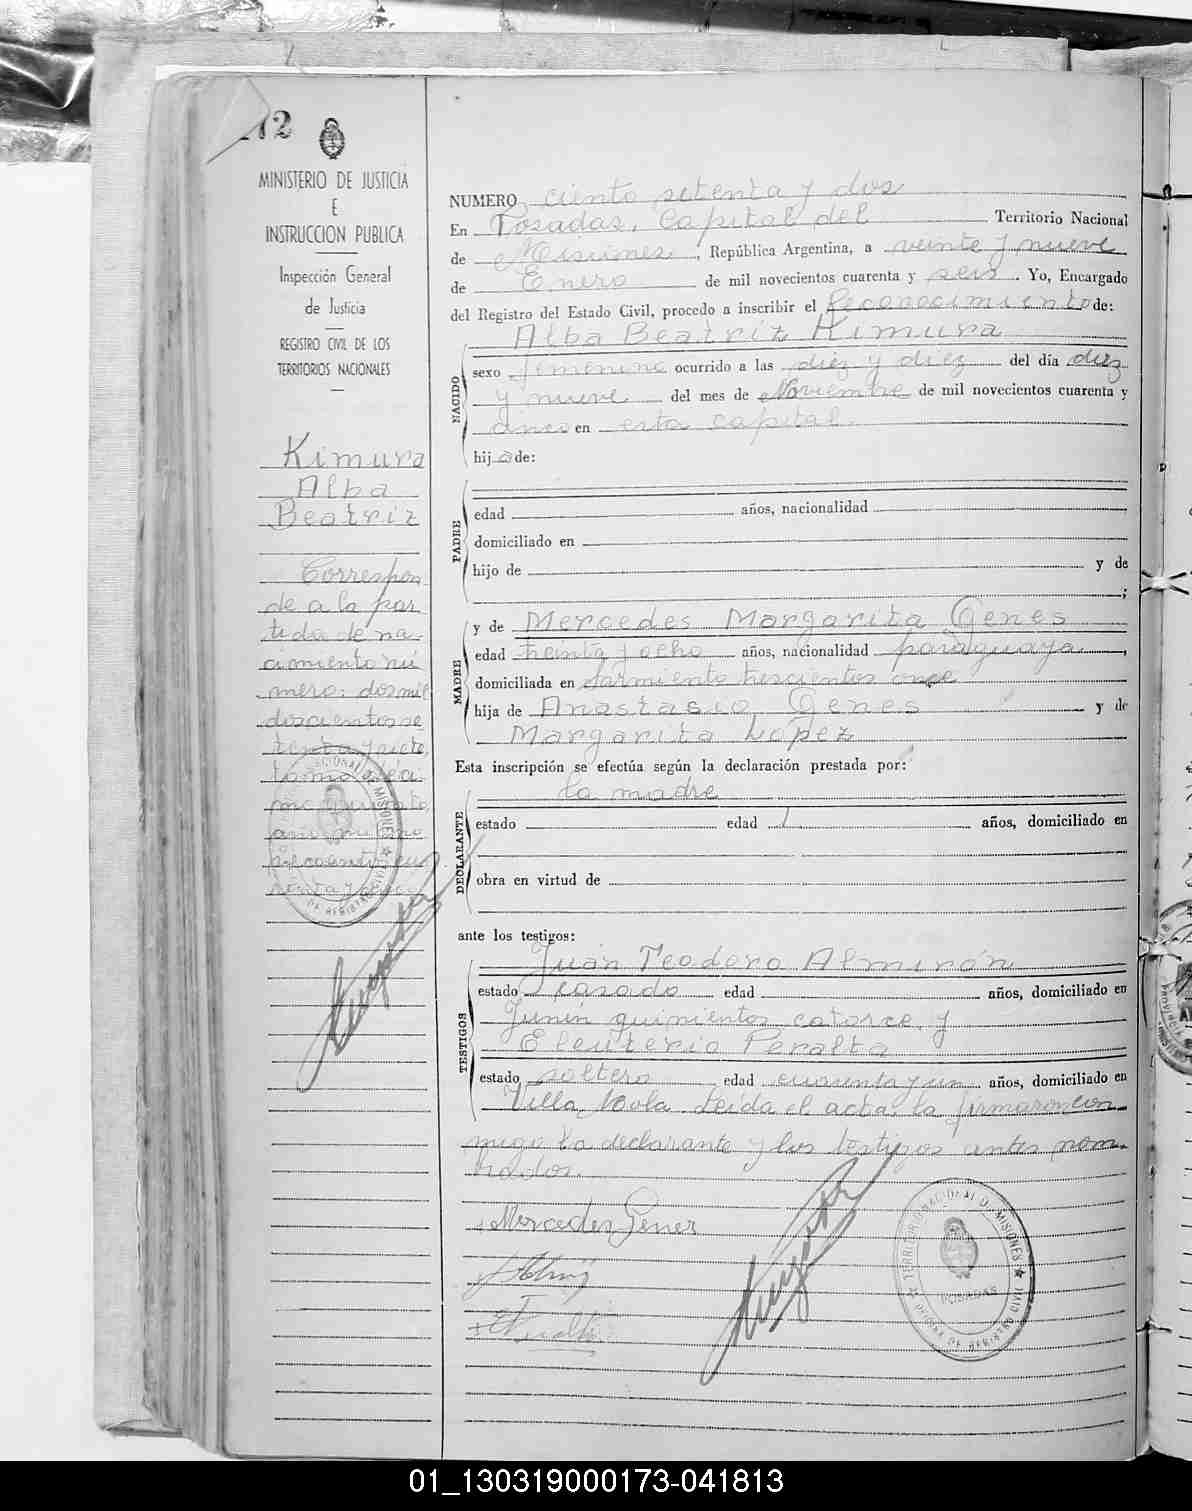 12
MINISTERIO DE JUSTICIA
E
INSTRUCCION PUBLICA
Inspección General
de Justicia
REGISTRO CIVIL DE LOS
TERRITORIOS NACIONALES
Kimura
Alba
Beatriz
Correspon
de a la par
tida de na
cimiento nú
mero: dos mil
doscientos se
tenta y siete,
NUMERO ciento setenta y dos
En Posadas, Capital del Territorio Nacional
de Misiones, República Argentina, a veinte y nueve
de Enero de mil novecientos cuarenta y seis. Yo, Encargado
del Registro del Estado Civil, procedo a inscribir el Reconocimiento de:
Alba Beatriz Kimura
NACIDO
sexo femenino ocurrido a las diez y diez del día diez
y nueve del mes de Noviembre de mil novecientos cuarenta y
cinco en esta capital.
hija de:
PADRE
edad años, nacionalidad
domiciliado en
hijo de y de
;
MADRE
y de Mercedes Margarita Genes
edad treinta y ocho años, nacionalidad paraguaya,
domiciliada en Sarmiento trescientos once
hija de Anastasio Genes y de
Margarita López
Esta inscripción se efectúa según la declaración prestada por:
la madre
DECLARANTE
estado edad años, domiciliado en
obra en virtud de
ante los testigos:
TESTIGOS
Juan Teodoro Almirón
estado casado edad años, domiciliado en
Junín quinientos catorce, y
Eleuterio Peralta
estado soltero edad cuarenta y un años, domiciliado en
Villa Mola. Leída el acta, la firmaron con
migo la declarante y los testigos antes nom-
brados.
Mercedes Genes
TERRITORIO NACIONAL DE MISIONES
POSADAS
OFICINA DE REGISTRO CIVIL
01_130319000173-041813